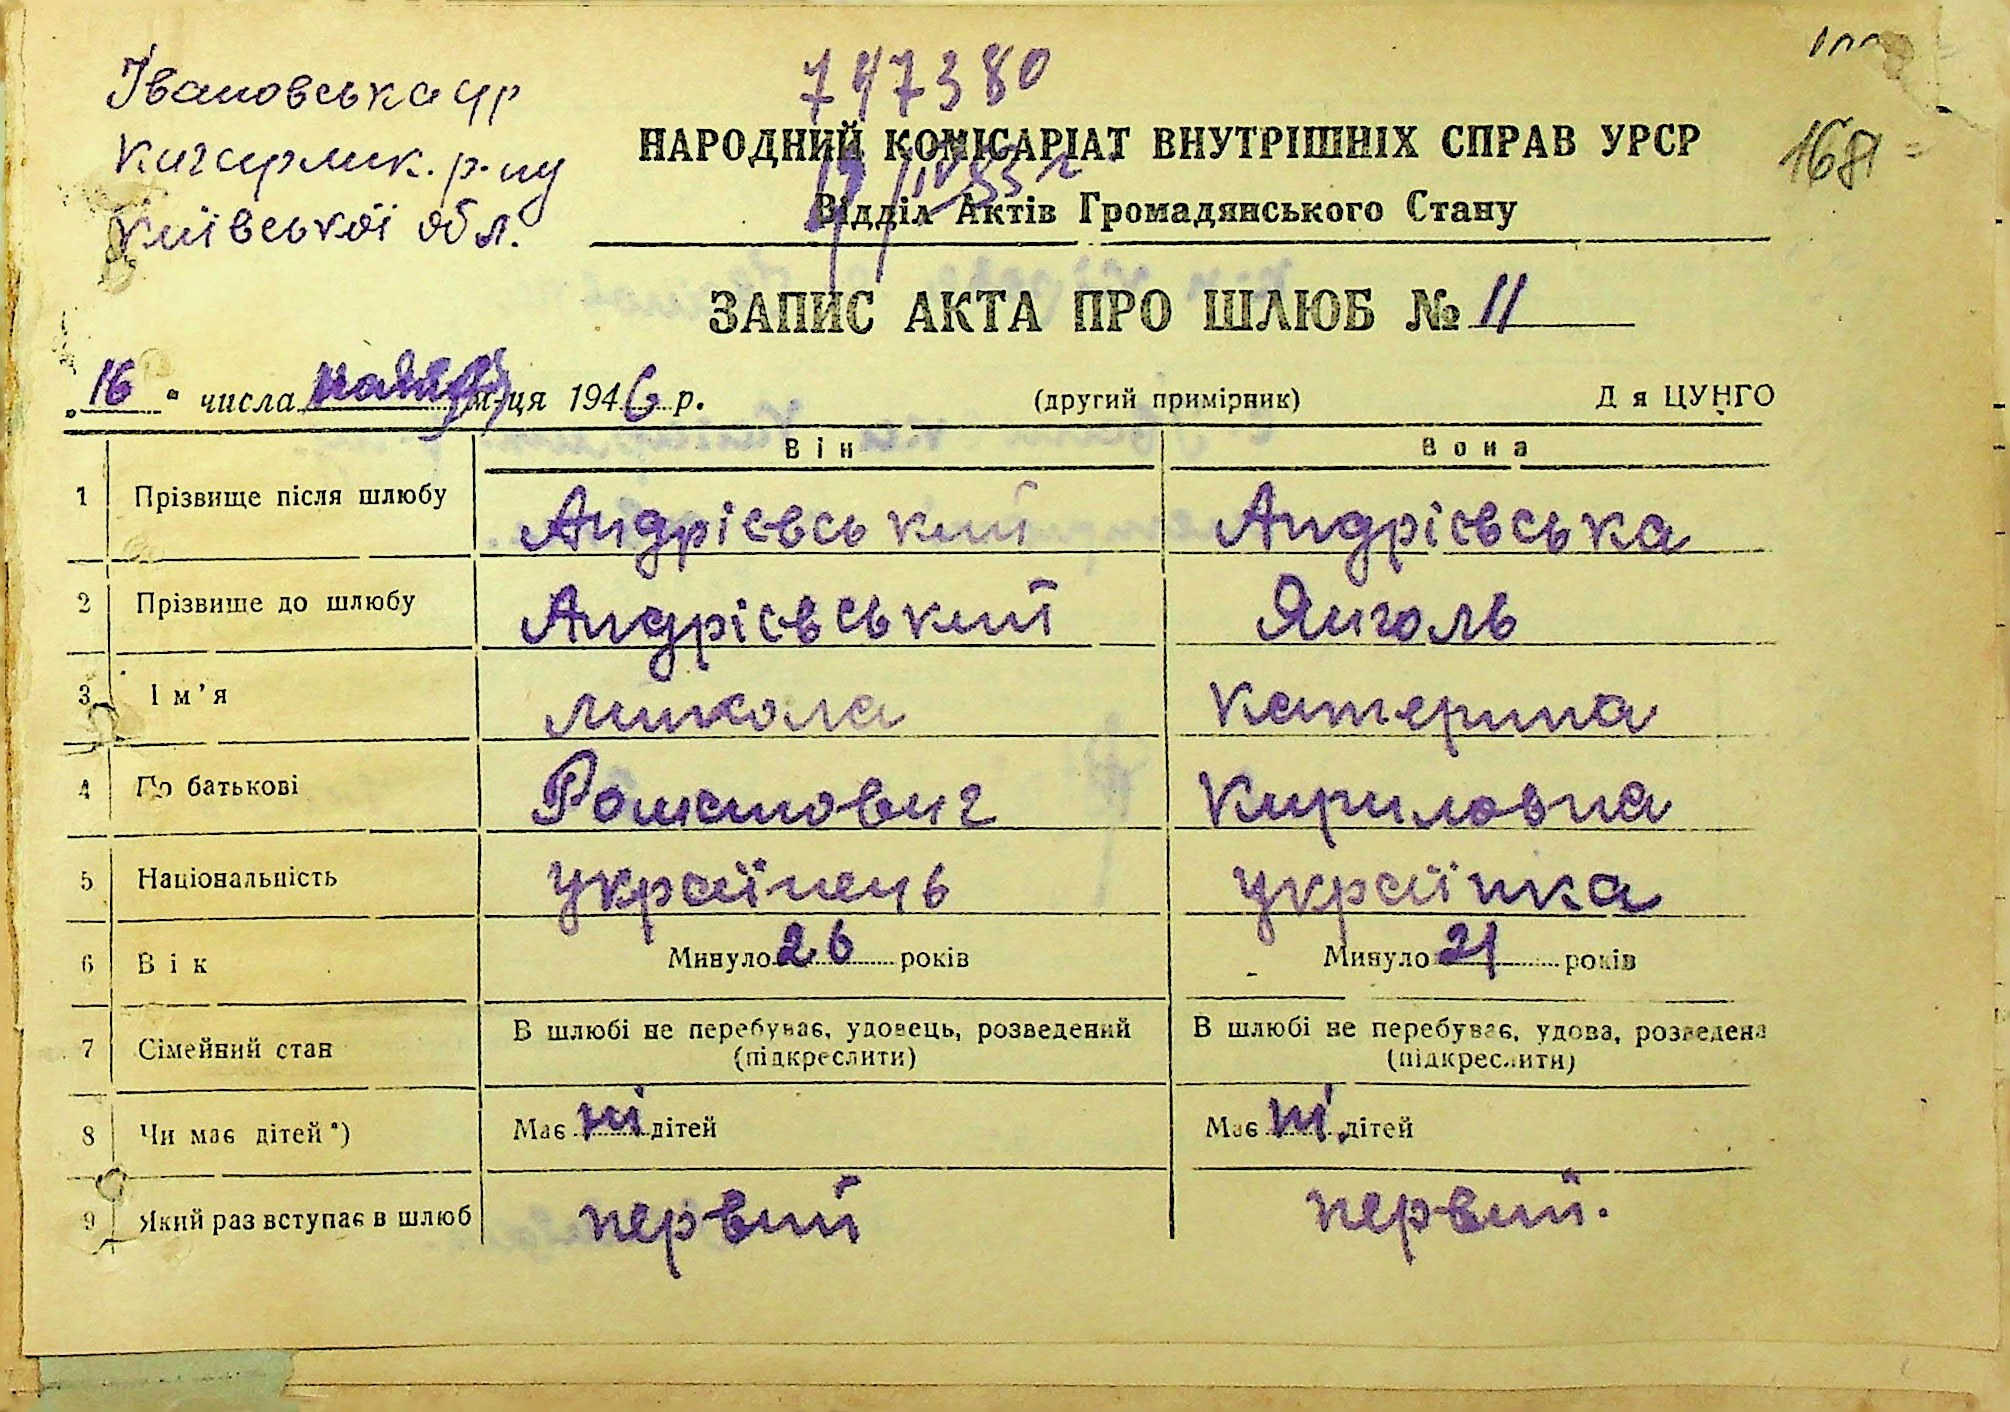 Івановська с/р
Кагарлик. р-ну
Київської обл.
747380
НАРОДНИЙ КОМІСАРІАТ ВНУТРІШНІХ СПРАВ УРСР
168
Відділ Актів Громадянського Стану
ЗАПИС АКТА ПРО ШЛЮБ № 11
„16" числа м-ця 1946 р. (другий примірник) Д я ЦУНГО
Він Вона
1 Прізвище після шлюбу Андрієвський Андрієвська
2 Прізвище до шлюбу Андрієвський Янголь
3 Ім'я Микола Катерина
4 По батькові Романович Кириловна
5 Національність українець українка
6 Вік Минуло 26 років Минуло 21 років
7 Сімейний стан В шлюбі не перебуває, удовець, розведений В шлюбі не перебуває, удова, розведена
(підкреслити) (підкреслити)
8 Чи має дітей*) Має ні дітей Має ні дітей
9 Який раз вступає в шлюб первий первий.